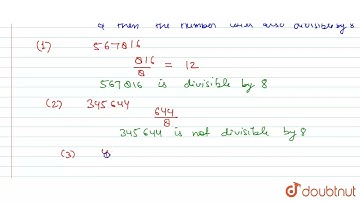 then the number will also divisible by 8
(1) 567816
816
8 = 12
567816 is divisible by 8
(2) 345644
644
8
345644 is not divisible by 8
(3)
doubtnut